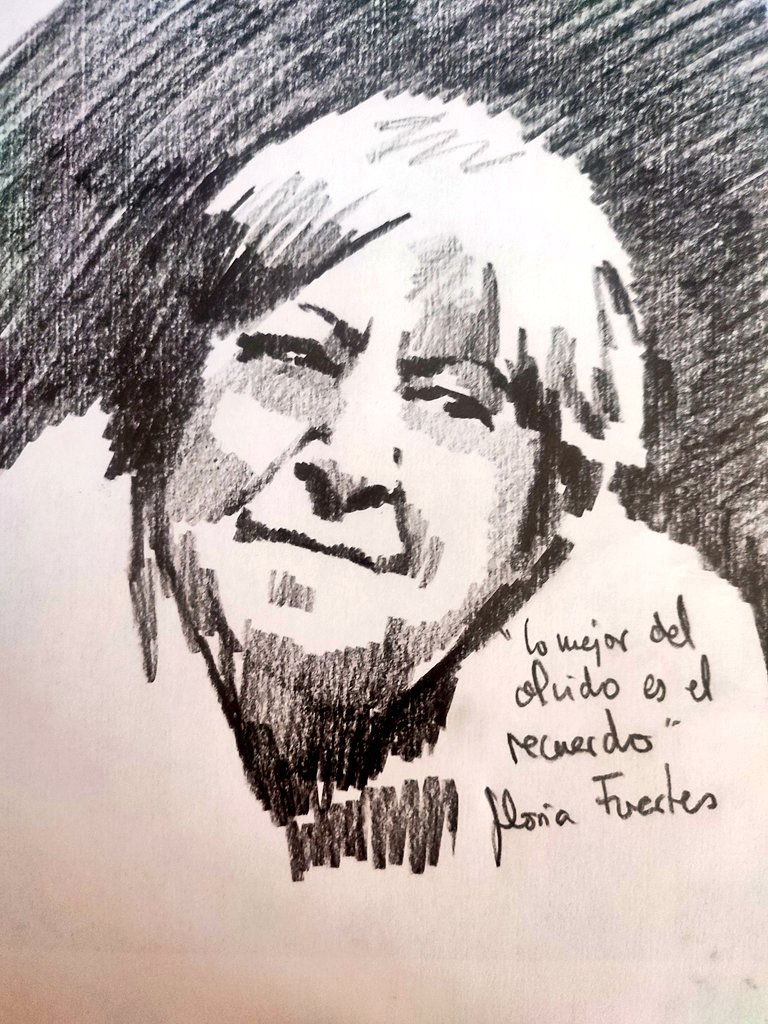 "Lo mejor del
olvido es el
recuerdo"
Gloria Fuertes